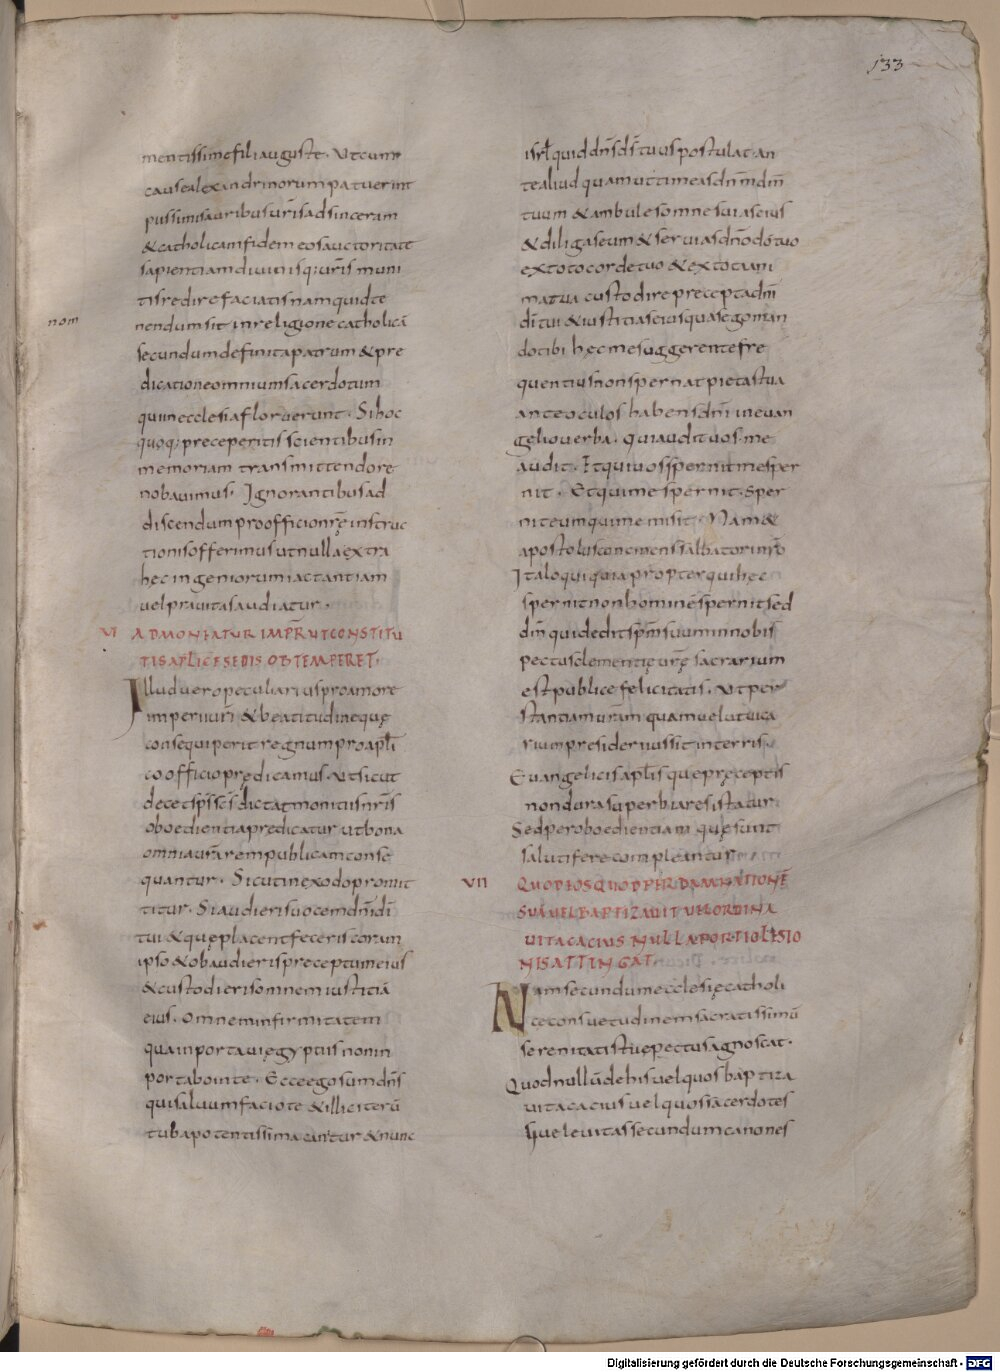 133
mentissime fili auguste. Ut cum
causae alexandrinorum patuerint
piissimis auribus uris ad sinceram
& catholicam fidem eos auctoritate
sapientiam diuinisq; uris muni
tis redire faciatis nam quid te
nom
nendum sit in religione catholica
secundum definita patrum & pre
dicatione omnium sacerdotum
qui in ecclesia floruerunt. Si hoc
quoq; preceperitis scientibus in
memoriam transmittendo re
nobauimus. Ignorantibus ad
discendum pro officio nrę instruc
tionis offerimus ut nulla extra
hęc ingeniorum iactantiam
uel prauitas audiatur.
VI ADMONEATUR IMPR UT CONSTITU
TIS APLICE SEDIS OBTEMPERET.
Illud uero peculiarius pro amore
imperii uri & beatitudine quę
consequi perit regnum pro apli
co officio prędicamus. Ut sicut
decet & sps scs dictat monitis nris
oboedientia predicatur ut bona
omnia uram rempublicam conse
quantur. Sicut in exodo promit
titur. Si audieris uocem dni di
tui & quę placent feceris coram
ipso & obaudieris preceptum eius
& custodieris omnem iustitiā
eius. Omnem infirmitatem
quam portaui ęgyptiis non in
portabo in te. Ecce ego sum dns
qui saluum facio te & illic iterū
tuba potentissima cantur & nunc
isrl quid dns ds tuus postulat. an
te aliud quam ut timeas dnm dm
tuum & ambules omnes uias eius
& diligas eum & seruias dno do tuo
ex toto corde tuo & ex tota ani
ma tua custodire precepta dni
di tui & iustitias eius quas ego man
do tibi hęc me suggerente fre
quentius non spernat pietas tua
ante oculos habens dni in euan
gelio uerba. qui audit uos. me
audit. Et qui uos spernit me sper
nit. Et qui me spernit. sper
nit eum qui me misit. Nam &
apostolus concinens salbatori nro
Ita loquiquia propter qui hęc
spernit non hominē spernit sed
dm qui dedit spm suum in nobis
pectus clementię urę sacrarium
est publice felicitatis. Ut per
stantiam uram quam uelut uica
rium presidere iussit in terris.
Euangelicis aplis que pręceptis
non dura superbia resistatur
Sed per oboedientiam quę sunt
salutifere compleantur
VII QUOD EOS QUOD PER DAMNATIONĒ
SUAM UEL BAPTIZAUIT UEL ORDINA
UIT ACACIUS NULLA PORTIO LESIO
NIS ATTINGAT.
Nam secundum ecclesię catholi
ce consuetudinem sacratissimū
serenitatis tuę pectus agnoscat.
Quod nullū de his uel quos baptiza
uit acacius uel quos sacerdotes
siue leuitas secundum canones
Digitalisierung gefördert durch die Deutsche Forschungsgemeinschaft - DFG